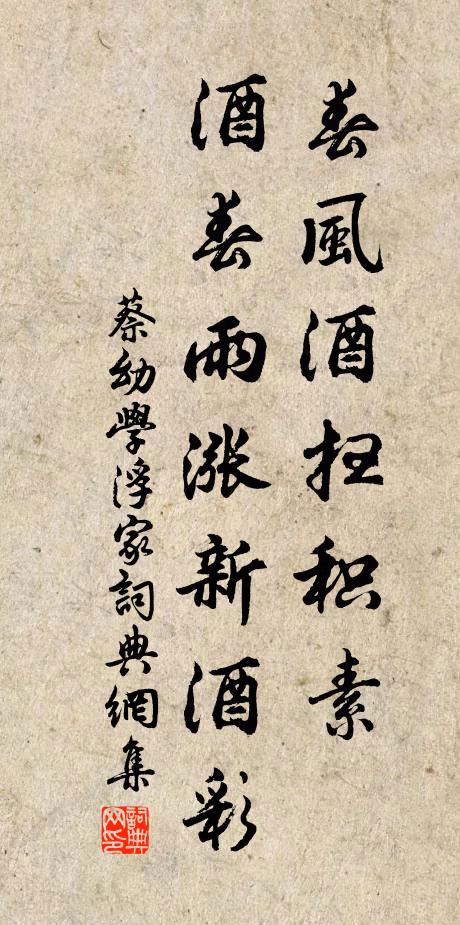 春風酒扫积素
酒春雨漲新酒彩
蔡幼學浮家詞典網集
詞典网印